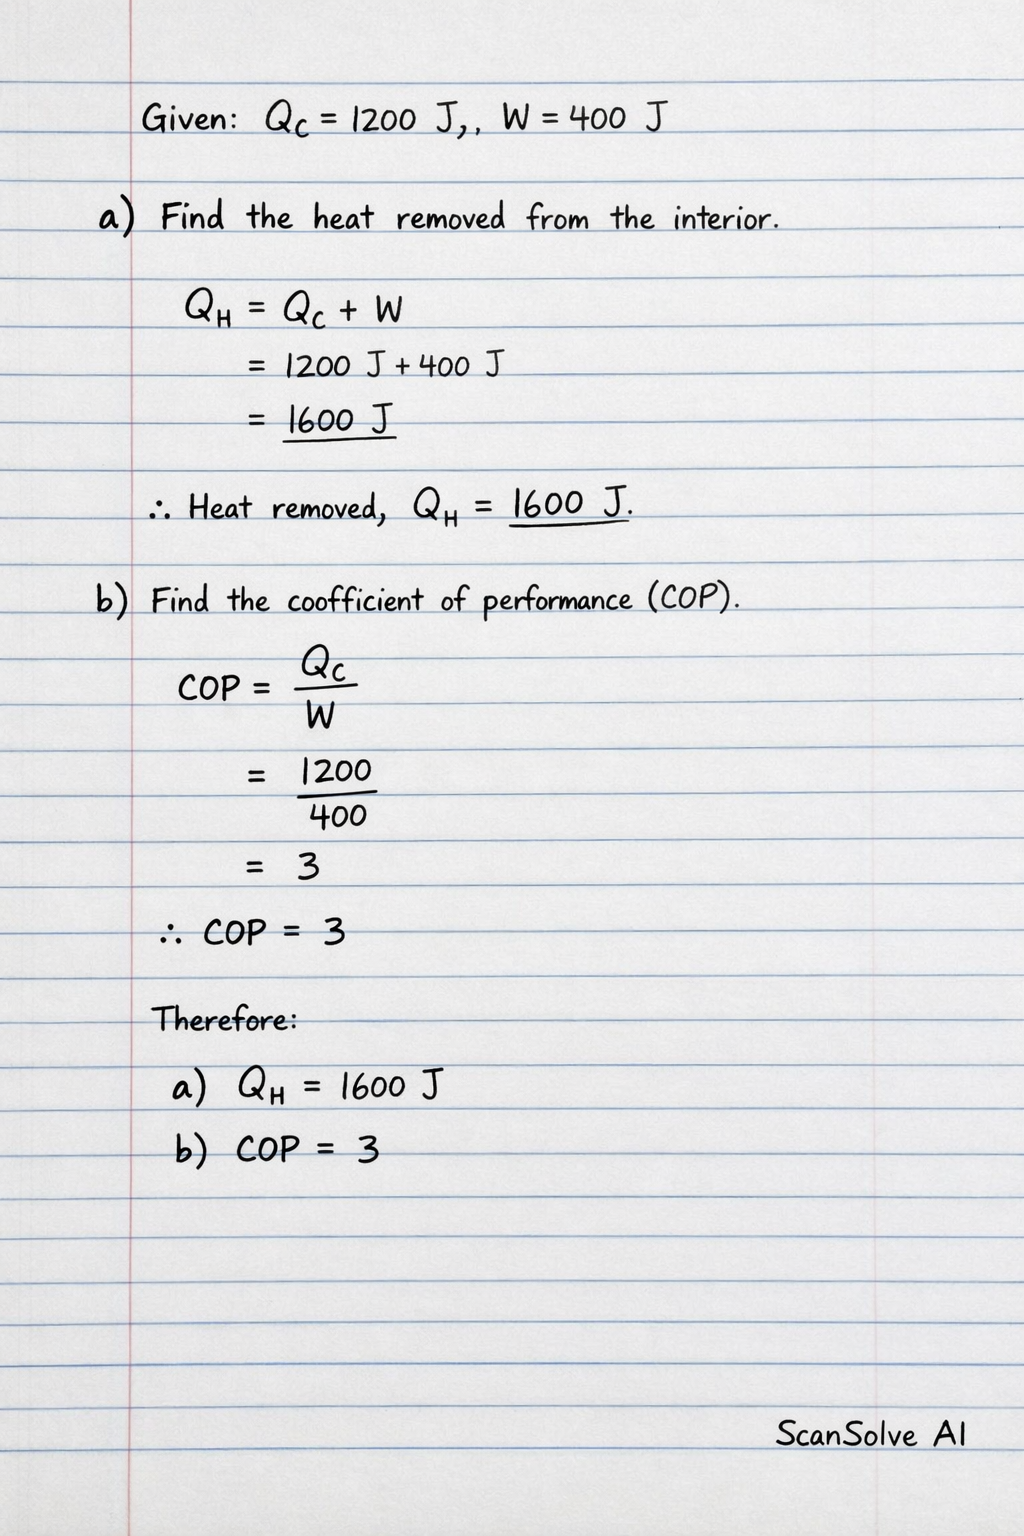 Given: Q_C = 1200 J,, W = 400 J
a) Find the heat removed from the interior.
Q_H = Q_C + W
= 1200 J + 400 J
= 1600 J
∴ Heat removed, Q_H = 1600 J.
b) Find the coofficient of performance (COP).
COP = Q_C / W
= 1200 / 400
= 3
∴ COP = 3
Therefore:
a) Q_H = 1600 J
b) COP = 3
ScanSolve AI